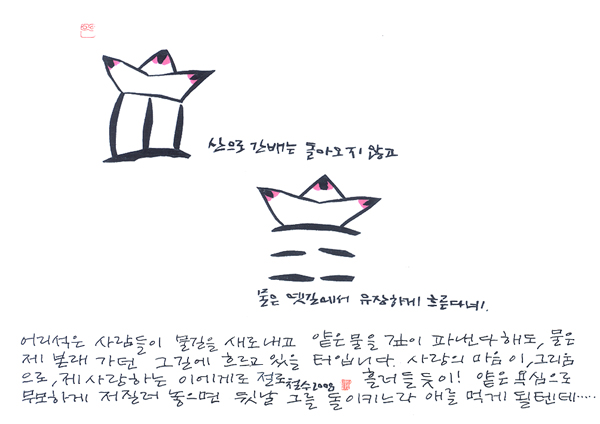 산으로 간배는 돌아오지 않고
물은 옛길에서 유장하게 흐른다네!
어리석은 사람들이 물길을 새로내고 얕은 물을 깊이 파낸다 해도, 물은
제 본래 가던 그길에 흐르고 있을 터입니다. 사랑의 마음이, 그리움
으로, 제 사랑하는 이에게로 절로 흘러들듯이! 얕은 욕심으로
철수2008
무모하게 저질러 놓으면 뒷날 그를 돌이키느라 애를 먹게 될텐데.....